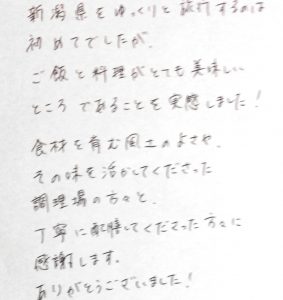 新潟県をゆっくりと旅行するのは
初めてでしたが、
ご飯と料理がとても美味しい
ところであることを実感しました！
食材を育む風土のよさや、
その味を活かしてくださった
調理場の方々と、
丁寧に配膳してくださった方々に
感謝します。
ありがとうございました！